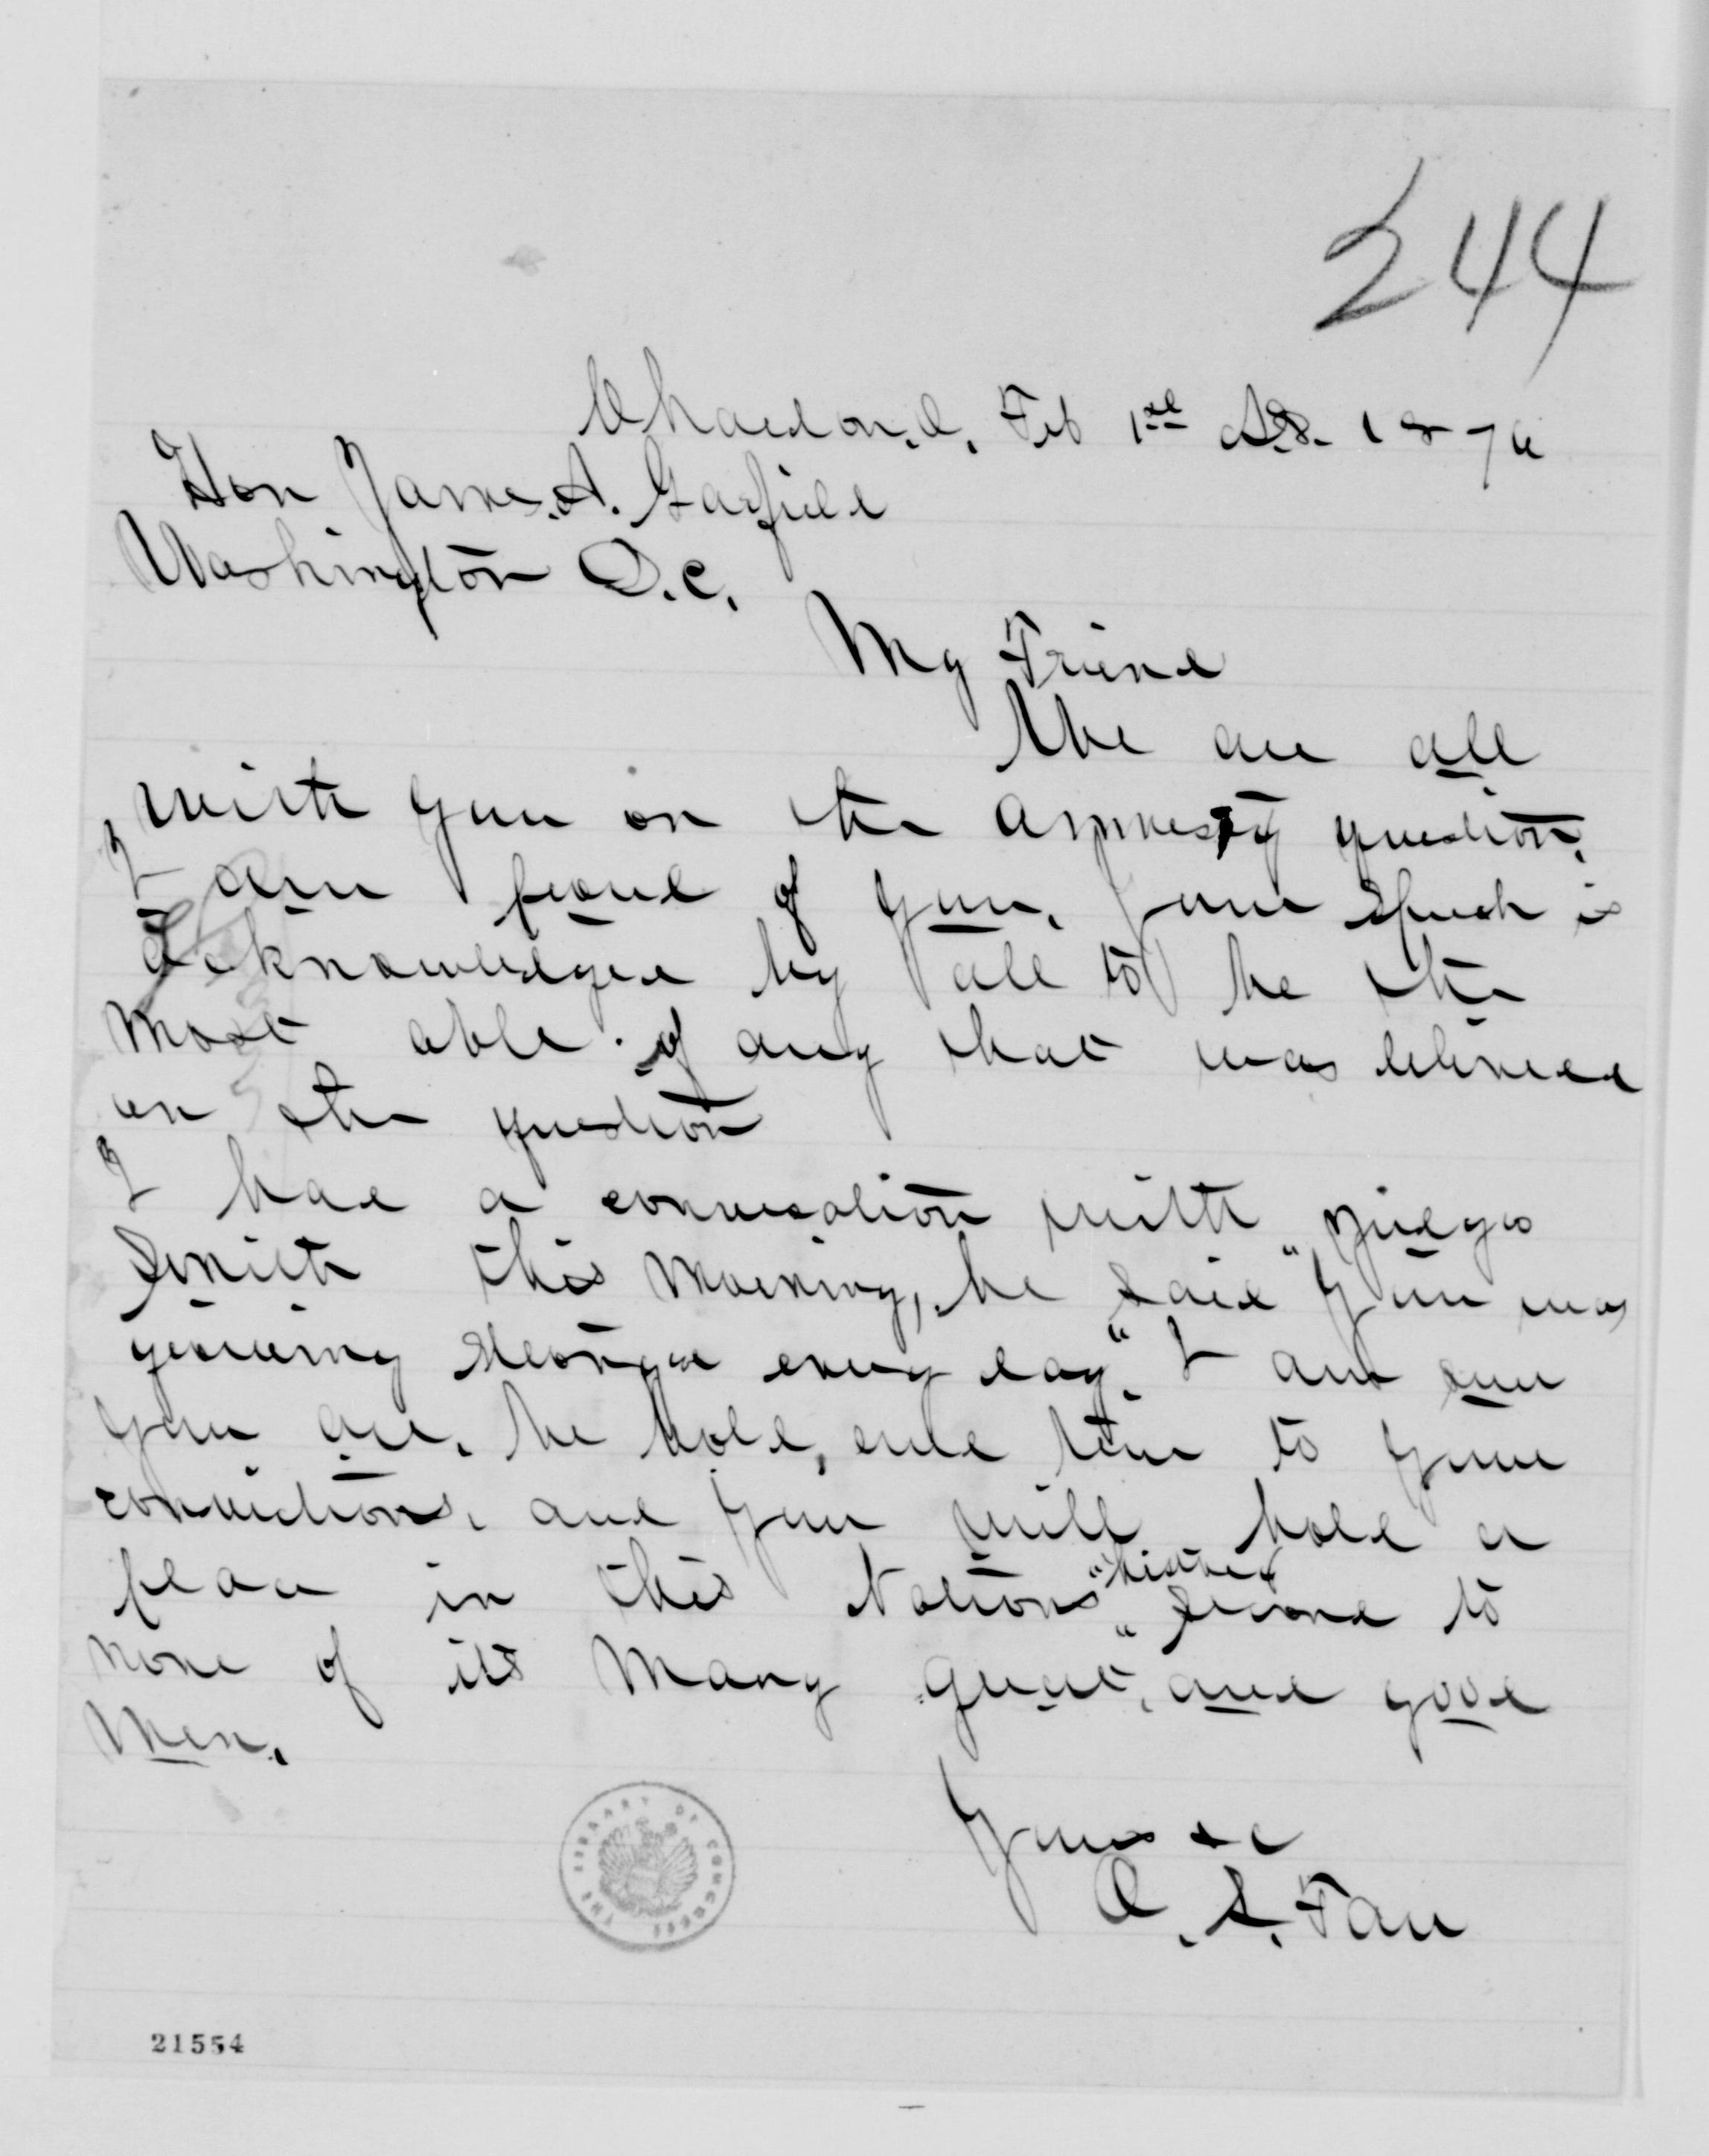 244
Chardon, O. Feb 1st A.D. 1876
Hon James. A. Garfield
Washington D.C.
My Friend
We are all
with you on the amnesty question.
I am proud of you. your Speech is
acknowledged by all to be the
most able of any that was delivered
on the question
I had a conversation with Judge
Smith this morning, he said "you was
growing stronger every day". I am sure
you are. be bold, and true to your
convictions. and you will hold a
place in this Nations "history" Second to
none of its many great, and good
Men.
Yours &c
O. S. Farr
THE LIBRARY OF CONGRESS
21554